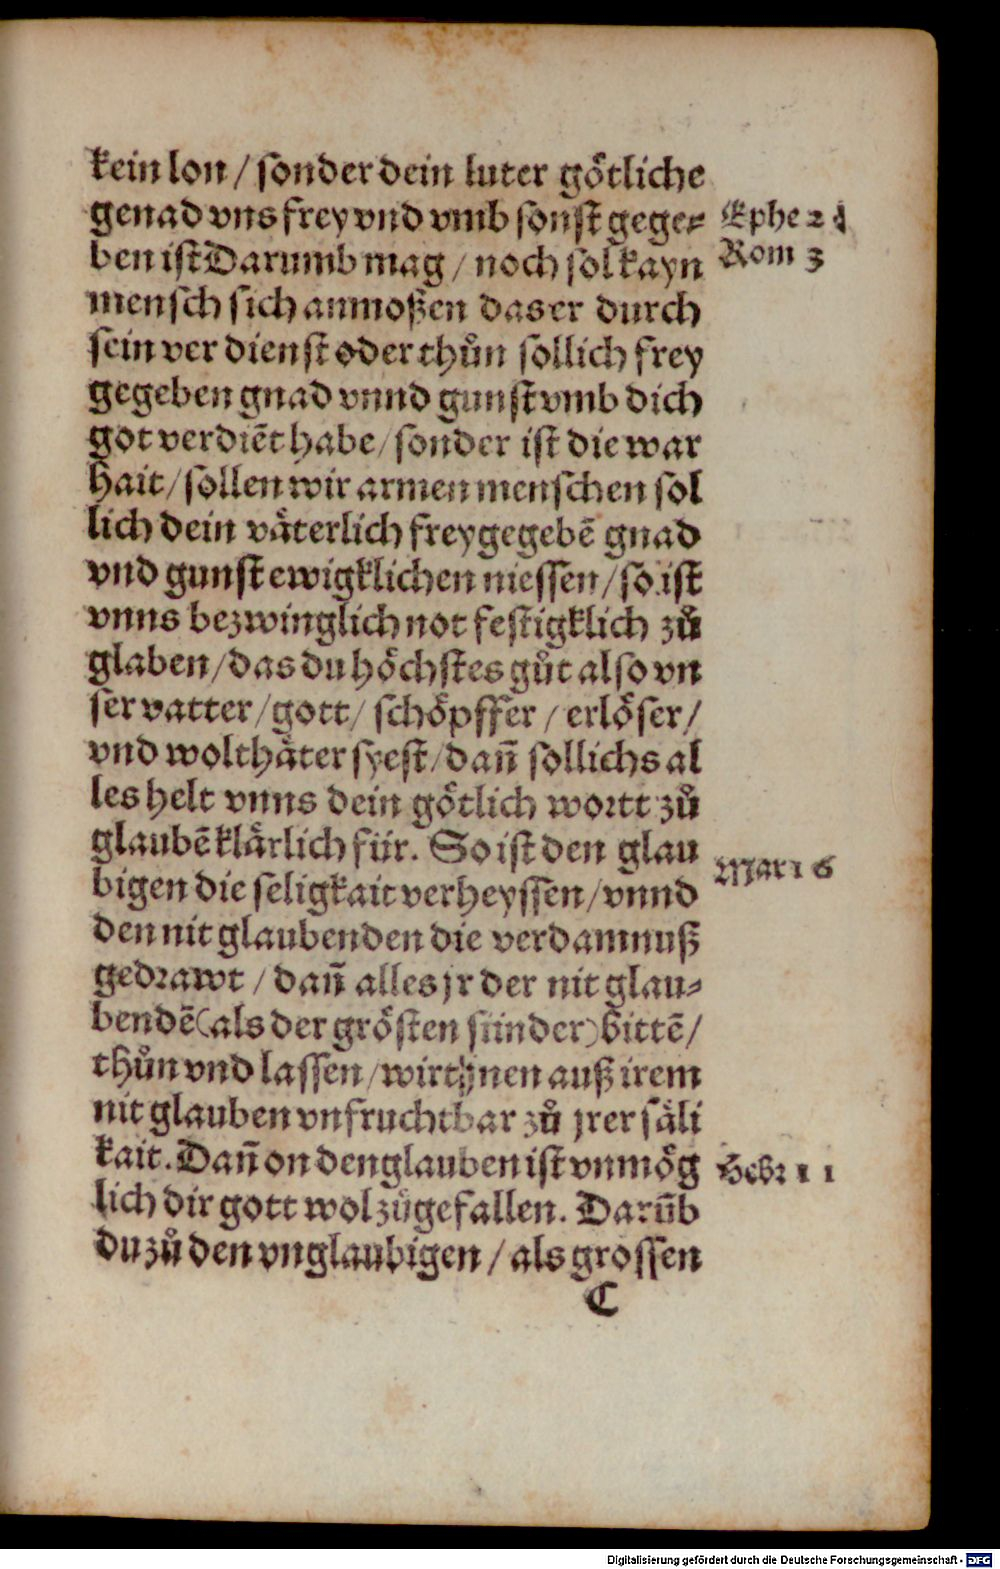 kein lon / sonder dein luter gȯtliche
genad vns frey vnd vmb sonst gege⸗
ben ist Darumb mag / noch sol kayn
mensch sich anmoßen das er durch
sein ver dienst oder thůn sollich frey
gegeben gnad vnnd gunst vmb dich
got verdiēt habe / sonder ist die war
hait / sollen wir armen menschen sol
lich dein vaͤterlich freygegebē gnad
vnd gunst ewigklichen niessen / so ist
vnns bezwinglich not festigklich zů
glaben / das du hoͤchstes gůt also vn
ser vatter / gott / schoͤpffer / erloͤser /
vnd wolthaͤter syest / dañ sollichs al
les helt vnns dein goͤtlich wortt zů
glaubē klaͤrlich für. So ist den glau
bigen die seligkait verheyssen / vnnd
den nit glaubenden die verdamnuß
gedrawt / dañ alles jr der nit glau⸗
bendē (als der groͤsten sünder) bittē /
thůn vnd lassen / wirt jnen auß irem
nit glauben vnfruchtbar zů jrer saͤli
kait. Dañ on den glauben ist vnmoͤg
lich dir gott wol zůgefallen. Darūb
du zů den vnglaubigen / als grossen
C
Ephe 2
Rom 3
Mar 16
Hebr 11
Digitalisierung gefördert durch die Deutsche Forschungsgemeinschaft - DFG